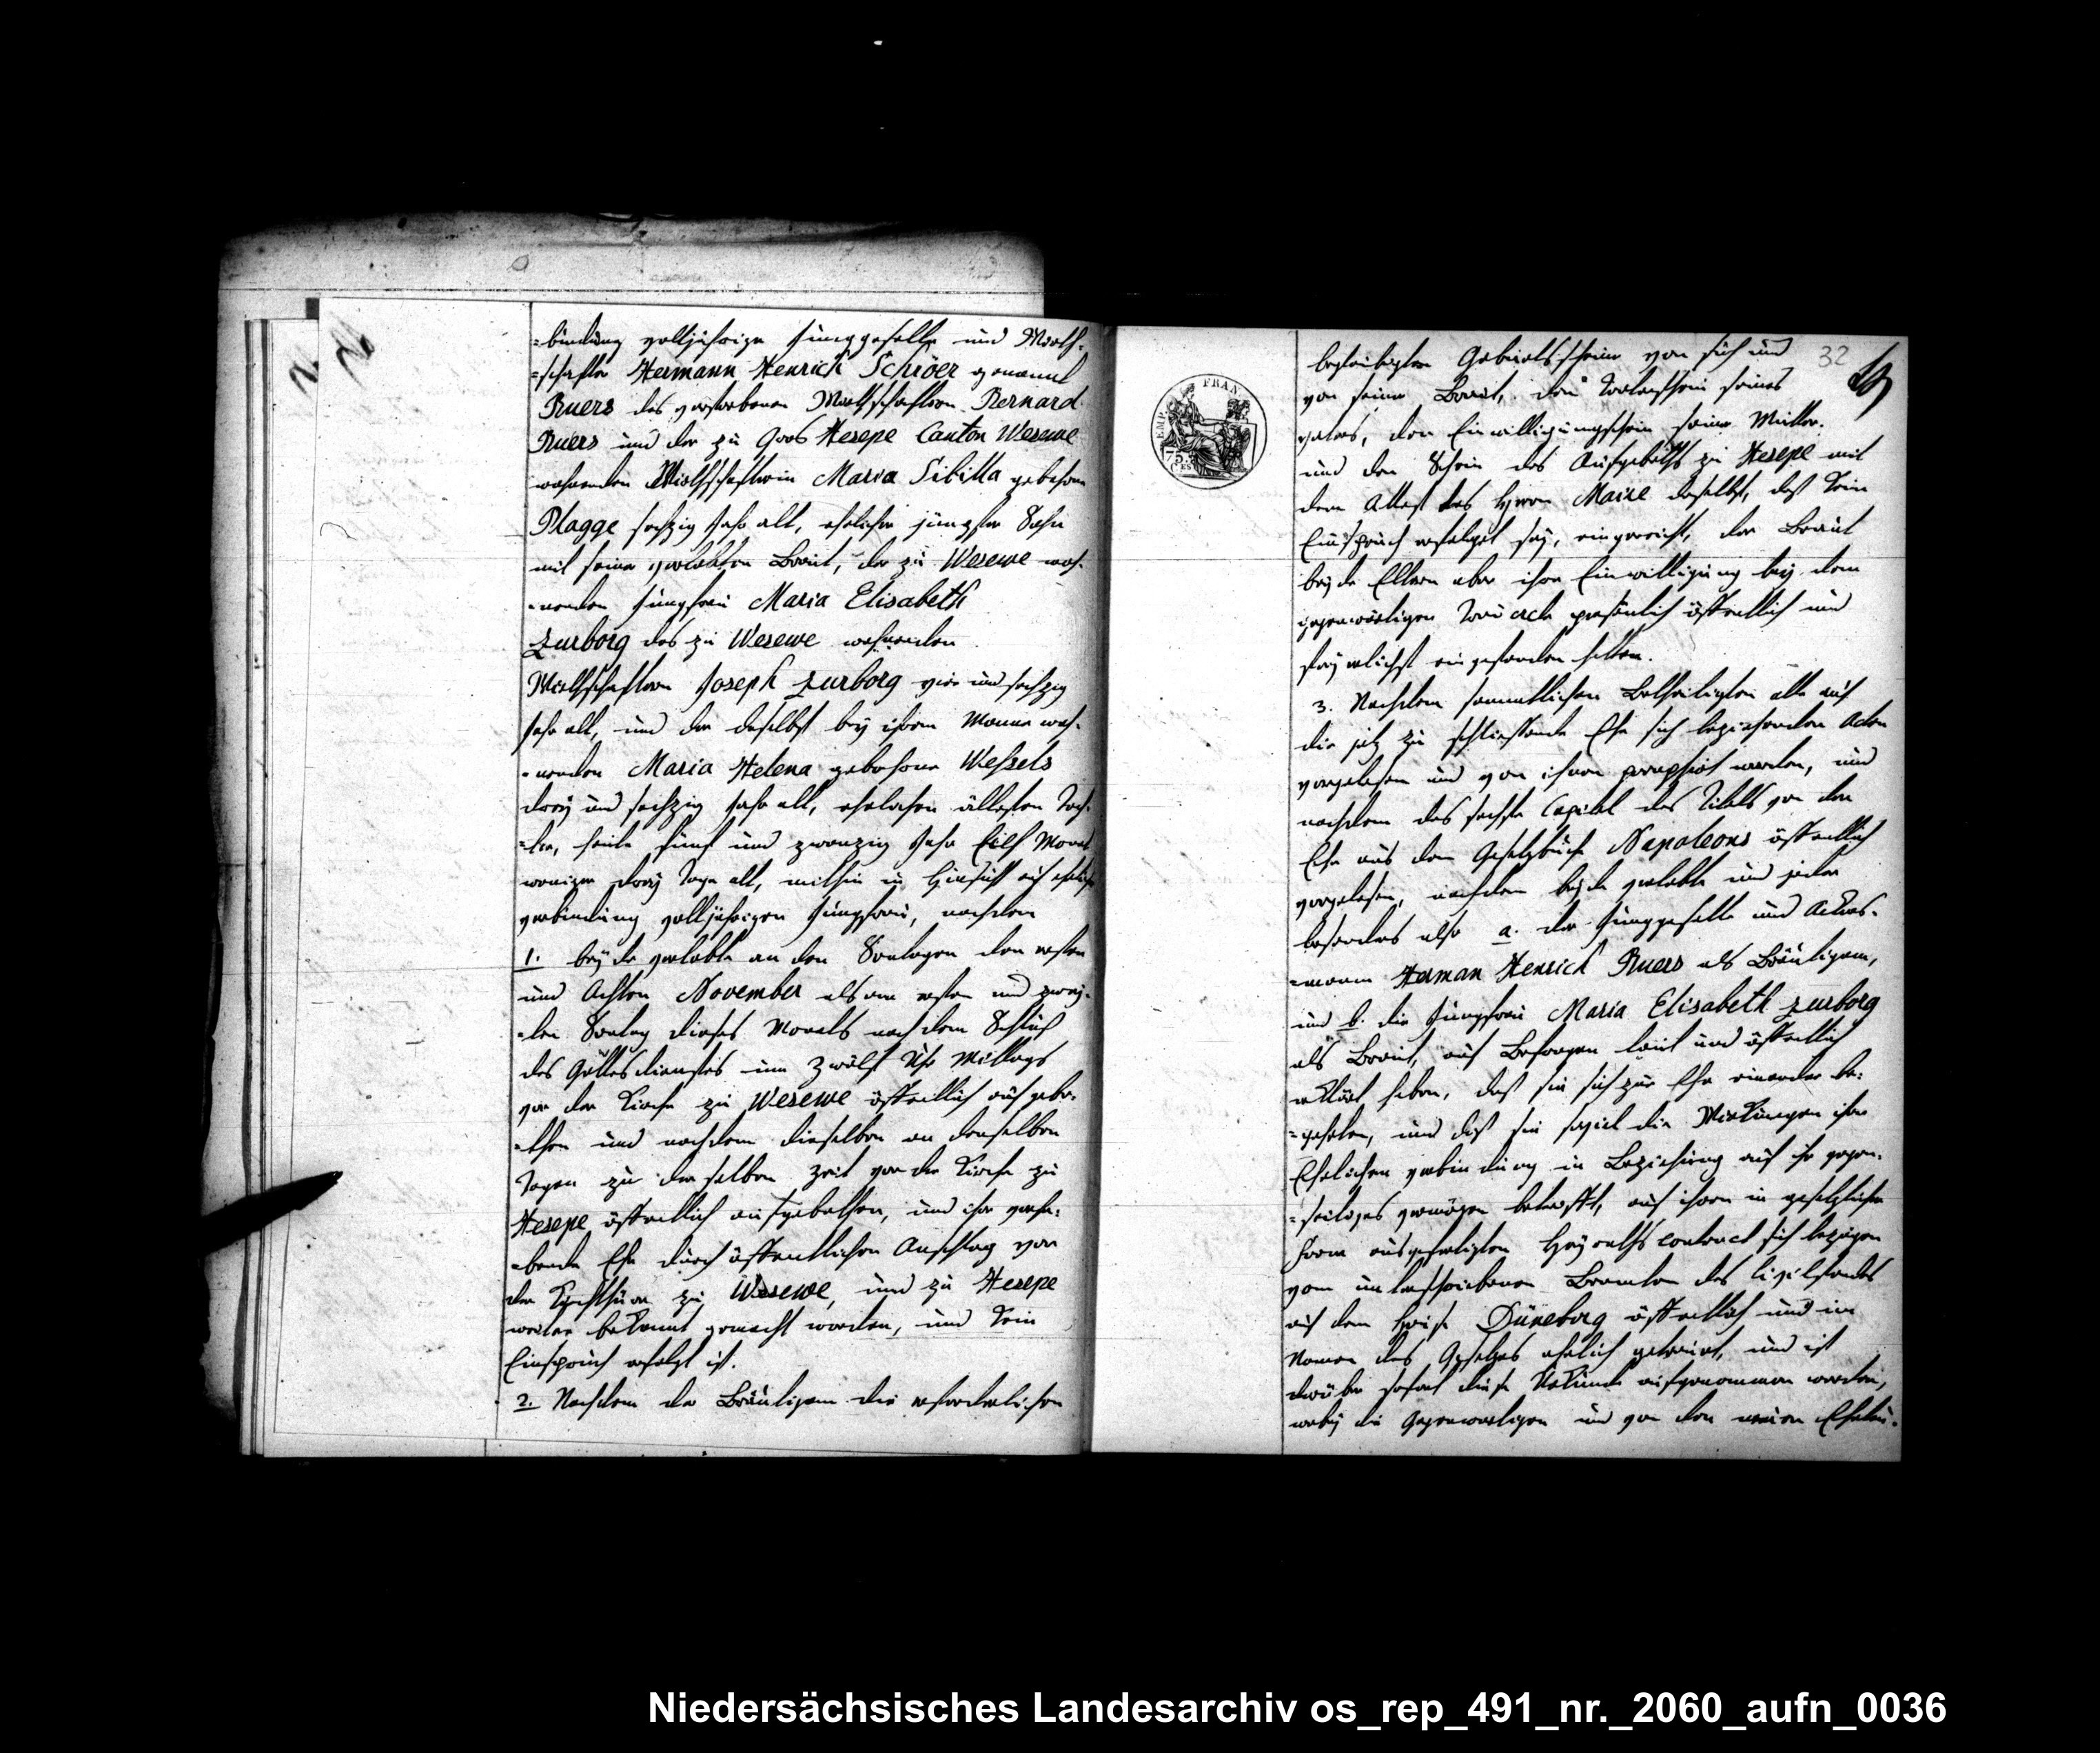 -bindung volljährige Junggeselle und Wirth-
-schafter Hermann Henrich Schröer genannt
Ruers des verstorbenen Wirthschafters Bernard
Ruers und der zu Gros Hesepe Canton Wesewe
wohnenden Wirthschafterin Maria Sibilla gebohrne
Plagge sechzig Jahr alt, ehelicher jüngster Sohn
mit seiner verlobten Braut, der zu Wesewe woh-
-nenden Jungfrau Maria Elisabeth
Zurborg des zu Wesewe wohnenden
Wirthschafters Joseph Zurborg vier und sechzig
Jahr alt, und der daselbst bey ihrem Manne woh-
-nenden Maria Helena gebohrne Weßels
drey und sechzig Jahr alt, ehelichen ältesten Toch-
-ter, heute fünf und zwanzig Jahr Eilf Monat
weniger drey Tage alt, mithin in Hinsicht auf eheliche
verbindung volljährigen Jungfrau, nachdem
1. beyde verlobte an den Sontagen den ersten
und Achten November als am ersten und zwey-
-ten Sontag dieses Monats nach dem Schluß
des Gottesdienstes um zwölf Uhr Mittags
vor der Kirche zu Wesewe öffentlich aufgebo-
-then und nachdem dieselben an denselben
Tagen zu derselben Zeit vor der Kirche zu
Hesepe öffentlich aufgebothen, und ihre vorha-
-bende Ehe durch öffentlichen Anschlag vor
der Kirchthüre zu Wesewe, und zu Hesepe
weiter bekannt gemacht worden, und kein
Einspruch erfolgt ist.
2. Nachdem der Bräutigam die erforderlichen
32
FRAN
EMP.
75.
C.ES
beglaubigten Geburtsscheine von sich und
von seiner Braut, den Todenschein seines
vaters, den Einwilligungsschein seiner Mutter.
und den Schein des Aufgeboths zu Hesepe mit
dem Attest des Herrn Maire daselbst, daß kein
Einspruch erfolget sey, eingereicht, der Braut
beyde Eltern aber ihre Einwilligung bey dem
gegenwärtigen Trau acte persönlich öffentlich und
feyerlichst eingestanden hatten.
3. Nachdem sammtlichen Betheiligten alle auf
die jetz zu schliessende Ehe sich beziehenden Acten
vorgelesen und von ihnen paraphirt worden, und
nachdem das sechste Capitel des Titels von der
Ehe aus dem Gesetzbuche Napoleons öffentlich
vorgelesen, nachdem beyde verlobte und jeder
besonders also a. der Junggeselle und Ackers-
-mann Herman Henrich Ruers als Bräutigam,
und b. die Jungfrau Maria Elisabeth Zurborg
als Braut, auf Befragen laut und öffentlich
erklärt haben, daß sie sich zur Ehe einander be-
-gehrten, und daß sie soviel die Wirkungen ihrer
Ehelichen verbindung in Beziehung auf ihr gegen-
-seitiges vermögen betrifft, auf ihren in gesetzlicher
Form ausgefertigten Heyraths contract sich bezögen
vom unterschriebenen Beamten des Civilstandes
auf dem Hause Düneborg öffentlich und im
Namen des Gesetzes ehelich getrauet, und ist
darüber sofort diese Urkunde aufgenommen worden,
wobey die Gegenwärtigen und von den neuen Eheleu-
Niedersächsisches Landesarchiv os_rep_491_nr._2060_aufn_0036